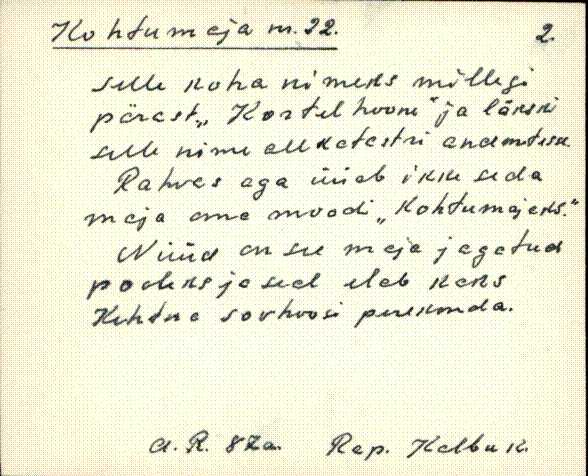 Kohtumaja nr. 22. 2.
selle koha nimeks millegi
pärast „Kortel hoone" ja läksi
selle nime all katastri andmtesse.
Rahvas aga üüab ikke seda
maja oma moodi „Kohtumajaks."
Nüüd on see maja jagatud
pooleks ja seal elab kaks
Kehtna sovhoosi perekonda.
A. R. 87a. Rap. Kalbu k.